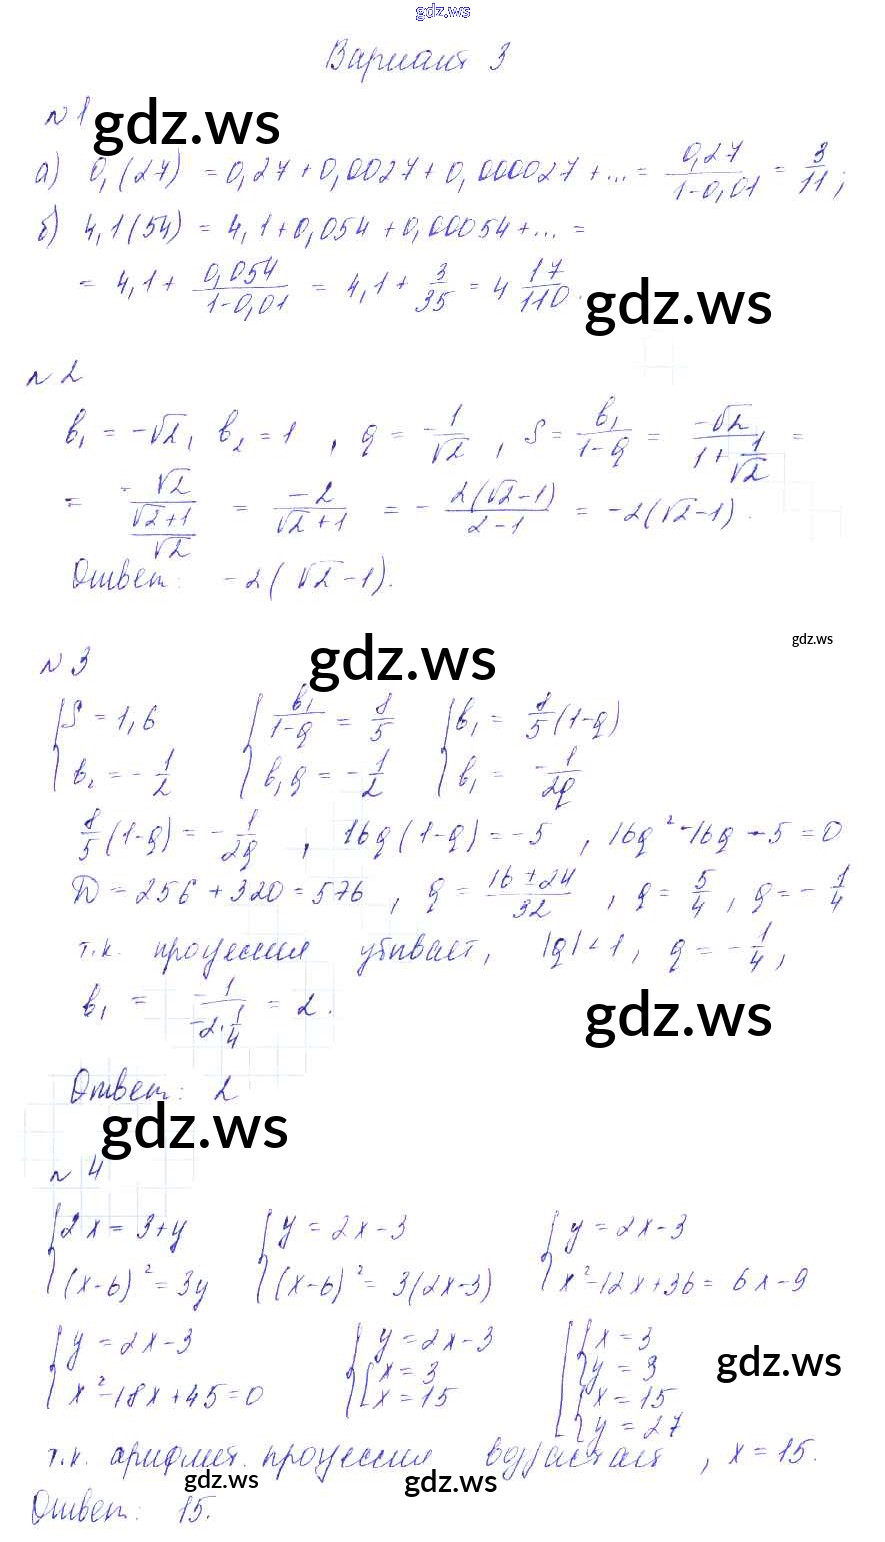 gdz.ws
Вариант 3
№1
gdz.ws
а) 0,(27) = 0,27 + 0,0027 + 0,000027 + ... = 0,27/(1-0,01) = 3/11;
б) 4,1(54) = 4,1 + 0,054 + 0,00054 + ... =
= 4,1 + 0,054/(1-0,01) = 4,1 + 3/35 = 4 17/110.
gdz.ws
№2
b₁ = -√2, b₂ = 1, q = -1/√2, S = b₁/(1-q) = -√2/(1+1/√2) =
= -√2/((√2+1)/√2) = -2/(√2+1) = -2(√2-1)/(2-1) = -2(√2-1).
Ответ: -2(√2-1).
№3
gdz.ws
gdz.ws
{S = 1,6 {b₁/(1-q) = 8/5 {b₁ = 8/5(1-q)
{b₂ = -1/2 {b₁q = -1/2 {b₁ = -1/2q
8/5(1-q) = -1/2q, 16q(1-q) = -5, 16q²-16q-5=0
D = 256 + 320 = 576, q = (16±24)/32, q = 5/4, q = -1/4
т.к. прогрессия убывает, |q|<1, q = -1/4,
b₁ = -1/(-2·1/4) = 2.
gdz.ws
Ответ: 2
gdz.ws
№4
{2x = 3+y {y = 2x-3 {y = 2x-3
{(x-6)² = 3y {(x-6)² = 3(2x-3) {x²-12x+36 = 6x-9
{y = 2x-3 {y = 2x-3 [{x = 3
{x²-18x+45=0 {[x = 3 [{y = 3
{[x = 15 [{x = 15
[{y = 27
gdz.ws
т.к. арифмет. прогрессия возрастает, x = 15.
gdz.ws
gdz.ws
Ответ: 15.